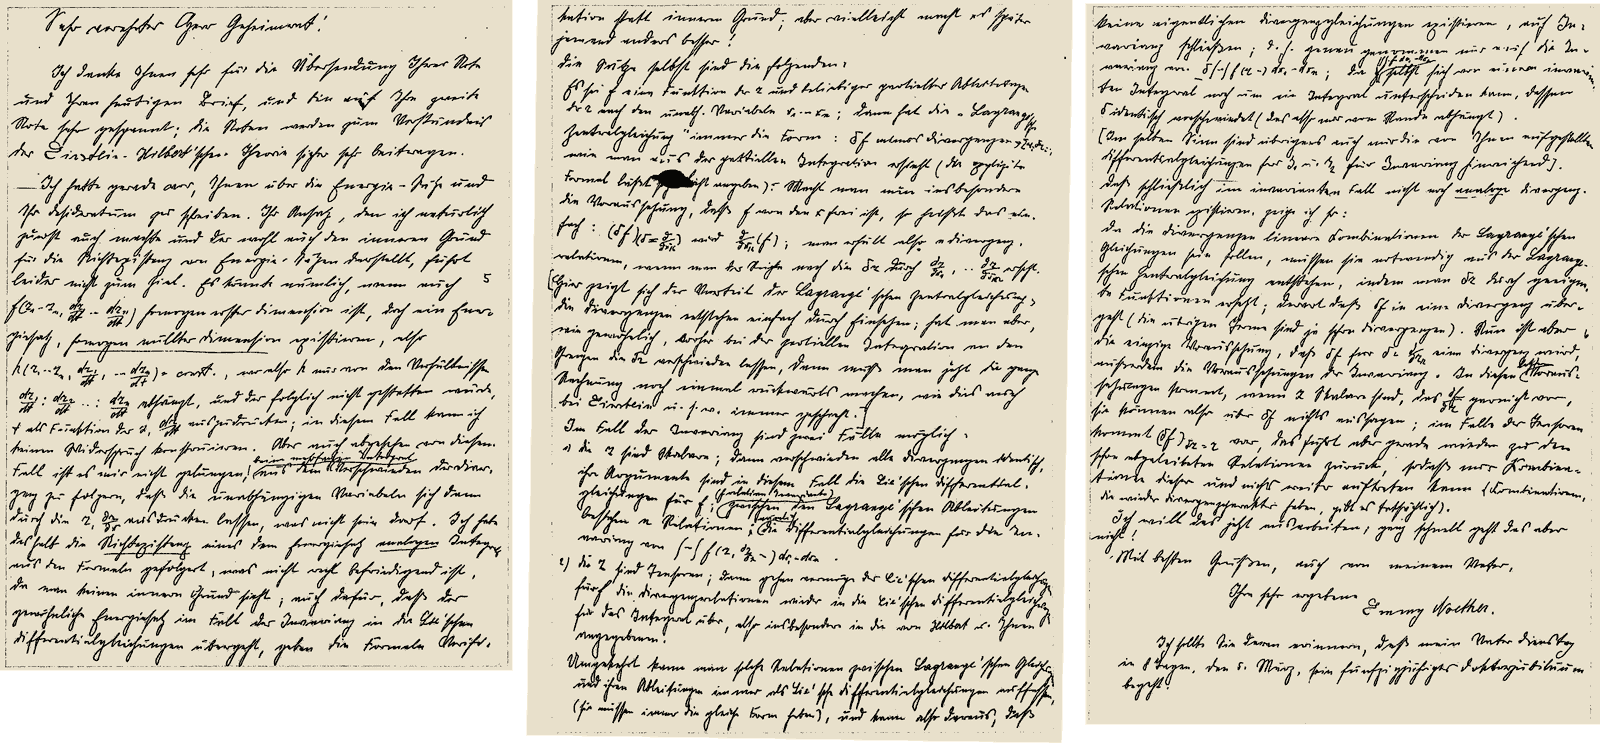 Sehr verehrter Herr Geheimrat!
Ich danke Ihnen sehr für die Übersendung Ihrer Note
und Ihren heutigen Brief, und bin auf Ihre zweite
Note sehr gespannt; die Noten werden zum Verständnis
der Einstein-Hilbert'schen Theorie sicher sehr beitragen.
Ich hatte gerade vor, Ihnen über die Energie-Sätze und
Ihr Desideratum zu schreiben. Ihr Ansatz, den ich natürlich
zuerst auch machte und der wohl auch den inneren Grund
für die Nichtexistenz von Energie-Sätzen darstellt, führt
leider nicht zum Ziel. Es könnte nämlich, wenn auch
homogen erster Dimension ist, doch ein Ener-
giesatz, homogen nullter Dimension existieren, also
= const., wo also h nur von den Verhältnissen
abhängt, und der folglich nicht gestatten würde,
als Funktion der auszudrücken; in diesem Fall kann ich
keinen Widerspruch konstruieren. Aber auch abgesehen von diesem
Fall ist es mir nicht gelungen, aus dem Verschwinden der Diver-
genz zu folgern, daß die unabhängigen Variabeln sich dann
durch die ausdrücken lassen, was nicht sein darf. Ich habe
deshalb die Nichtexistenz eines dem Energiesatz analogen Integrals
aus den Formeln gefolgert, was nicht recht befriedigend ist,
da man keinen inneren Grund sieht; auch dafür, daß der
gewöhnliche Energiesatz im Fall der Invarianz in die Lie'schen
Differentialgleichungen übergeht, geben die Formeln Verifi-
kation statt inneren Grund; aber vielleicht macht es später
jemand anders besser!
Die Sätze selbst sind die folgenden:
Es sei f eine Funktion der z und beliebiger partieller Ableitungen
der z nach den unabh. Variabeln; dann hat die "Lagrange'sche
Zentralgleichung" immer die Form:
wie man aus der partiellen Integration ersieht (die explizite
Formel läßt sich leicht angeben). Macht man nun insbesondere
die Voraussetzung, daß f von den x frei ist, so heißt das ein-
fach: wird; man erhält also n Divergenz-
relationen, wenn man der Reihe nach die δz durch ersetzt.
(Hier zeigt sich der Vorteil der Lagrange'schen Zentralgleichung,
die Divergenzen entstehen einfach durch Einsetzen; hat man aber,
wie gewöhnlich, vorher bei der partiellen Integration an den
Grenzen die δz verschwinden lassen, dann muß man jetzt die ganze
Rechnung noch einmal rückwärts machen, wie dies auch
bei Einstein u.s.w. immer geschah.)
Im Fall der Invarianz sind zwei Fälle möglich:
1) die z sind Skalare; dann verschwinden alle Divergenzen identisch,
ihre Argumente sind in diesem Fall die Lie'schen Differential-
gleichungen für f; zwischen den Lagrange'schen Ableitungen
bestehen n Relationen; die Differentialgleichungen für die In-
varianz von
2) die z sind Tensoren; dann gehen vermöge der Lie'schen Differentialgleichungen
für f die Divergenzrelationen wieder in die Lie'schen Differentialgleichungen
für das Integral über, also insbesondere in die von Hilbert u. Ihnen
angegebenen.
Umgekehrt kann man solche Relationen zwischen Lagrange'schen Gleichungen
und ihren Ableitungen immer als Lie'sche Differentialgleichungen auffassen,
(sie müssen immer die gleiche Form haben), und kann also daraus, daß
keine eigentlichen Divergenzgleichungen existieren, auf In-
varianz schließen; d.h. genau genommen nur auf die In-
varianz von; da f selbst sich von einem invarian-
ten Integral noch um ein Integral unterscheiden kann, dessen
δ identisch verschwindet (das also nur vom Rande abhängt).
(Im selben Sinn sind übrigens auch nur die von Ihnen aufgestellten
Differentialgleichungen für Invarianz hinreichend).
Daß schließlich im invarianten Fall nicht noch analoge Divergenz-
Relationen existieren, zeige ich so:
Da die Divergenzen lineare Kombinationen der Lagrange'schen
Gleichungen sein sollen, müssen sie notwendig aus der Lagrange-
schen Zentralgleichung entstehen, indem man δz durch geeigne-
te Funktionen ersetzt; derart daß δf in eine Divergenz über-
geht (die übrigen Terme sind ja schon Divergenzen). Nun ist aber
die einzige Voraussetzung, daß δf für eine Divergenz wird,
außerdem die Voraussetzungen der Invarianz. In diesen Voraus-
setzungen kommt, wenn z Skalare sind, das garnicht vor,
sie können also über δf nichts aussagen; im Falle der Tensoren
kommt vor, das führt aber gerade wieder zu den
schon abgeleiteten Relationen zurück, sodaß nur Kombina-
tionen dieser und nichts weiter auftreten kann (Kombinationen,
die wieder Divergenzcharakter haben, gibt es tatsächlich).
Ich will das jetzt ausarbeiten; ganz schnell geht das aber
nicht!
Mit besten Grüßen, auch von meinem Vater,
Ihre sehr ergebene
Emmy Noether.
Ich sollte Sie daran erinnern, daß mein Vater Dienstag
in 8 Tagen, den 5. März, sein fünfzigjähriges Doktorjubiläum
begeht.